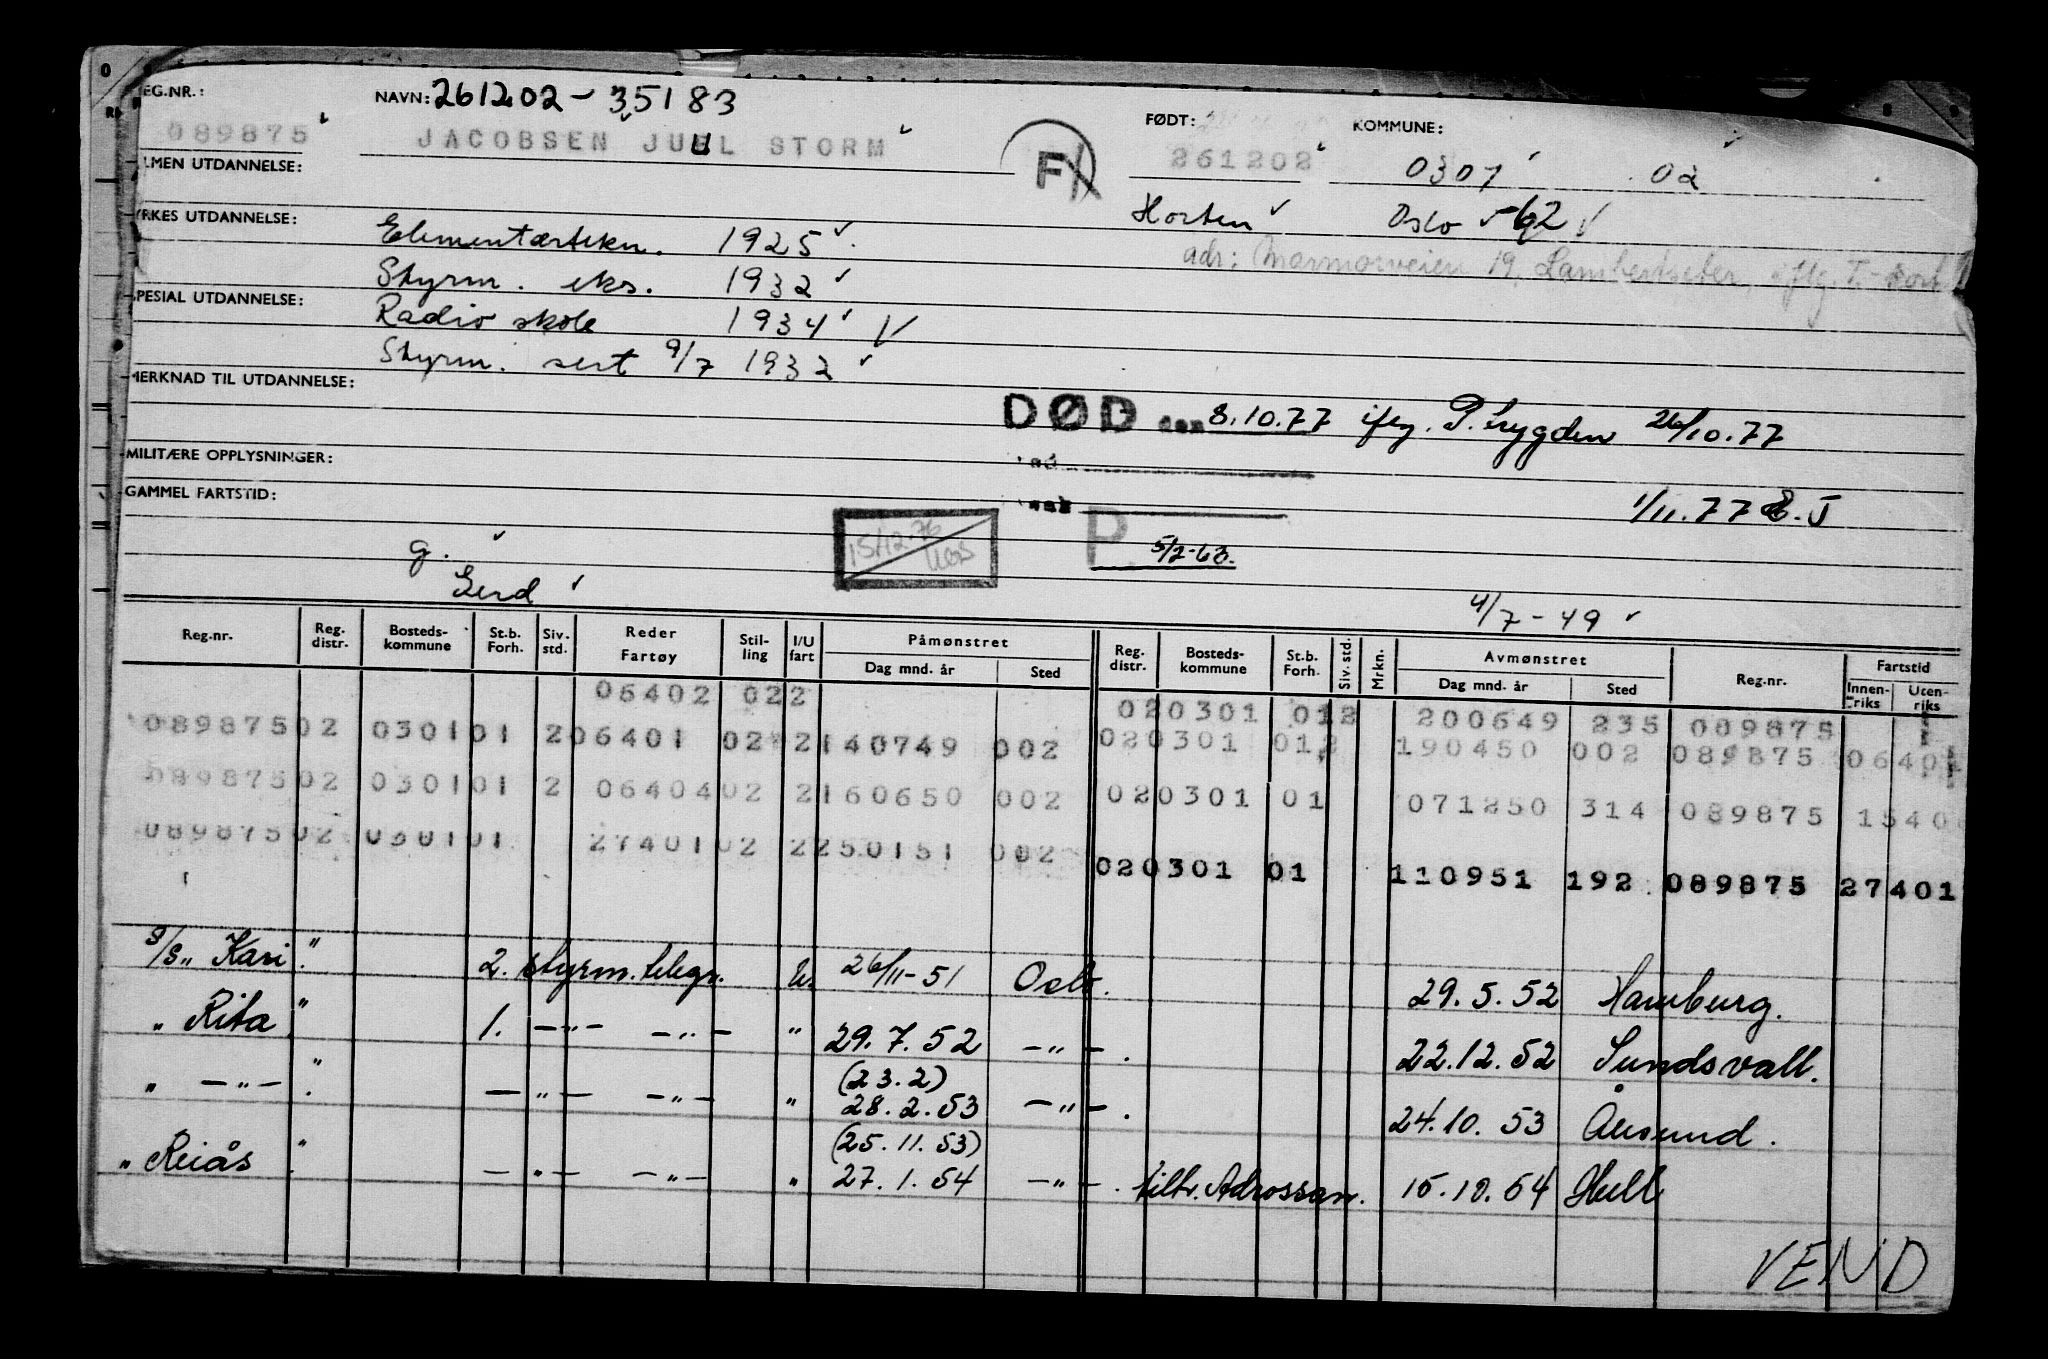 EG.NR.: NAVN: 261202-35183 FØDT: KOMMUNE:
089875 JACOBSEN JUUL STORM F 261202 0301 02
LMEN UTDANNELSE:
Horten Oslo -62
YRKES UTDANNELSE: Elementærtekn. 1925
adr: Marmorveien 19, Lambertseter, iflg. T.-kort
Styrm. eks. 1932
PESIAL UTDANNELSE: Radio skole 1934
Styrm. sert 9/7 1932
MERKNAD TIL UTDANNELSE:
DØD den 8.10.77 iflg. P. trygden 26/10.77
MILITÆRE OPPLYSNINGER:
GAMMEL FARTSTID: 1/11.77 E.J
15/12.76
P 5/2-63.
g.
Gerd 4/7-49
Reg.nr. Reg. distr. Bosteds-kommune St.b. Forh. Siv. std. Reder Fartøy Stil-ling I/U fart Påmønstret Dag mnd. år Sted Reg. distr. Bosteds-kommune St.b. Forh. Siv. std. Mrkn. Avmønstret Dag mnd. år Sted Reg.nr. Fartstid Innen-riks Uten-riks
06402 022 020301 012 200649 235 089875
089875 02 0301 01 2 06401 02 2 140749 002 020301 012 190450 002 089875 0640
089875 02 0301 01 2 06404 02 2 160650 002 020301 01 071250 314 089875 1540
089875 02 0301 01 27401 02 2 250151 002
020301 01 110951 192 089875 27401
S/S „Kari". 2. styrm. telegr. U. 26/11-51 Oslo. 29.5.52 Hamburg.
„ Rita." 1. —„— —„— " 29.7.52 —„—. 22.12.52 Sundsvall.
(23.2)
„ —„— ". —„— —„— " 28.2.53 —„—. 24.10.53 Ålesund.
(25.11.53)
„ Reiås ". —„— —„— " 27.1.54 —„—. tiltr. Adrossan. 15.10.54 Hull
VEND